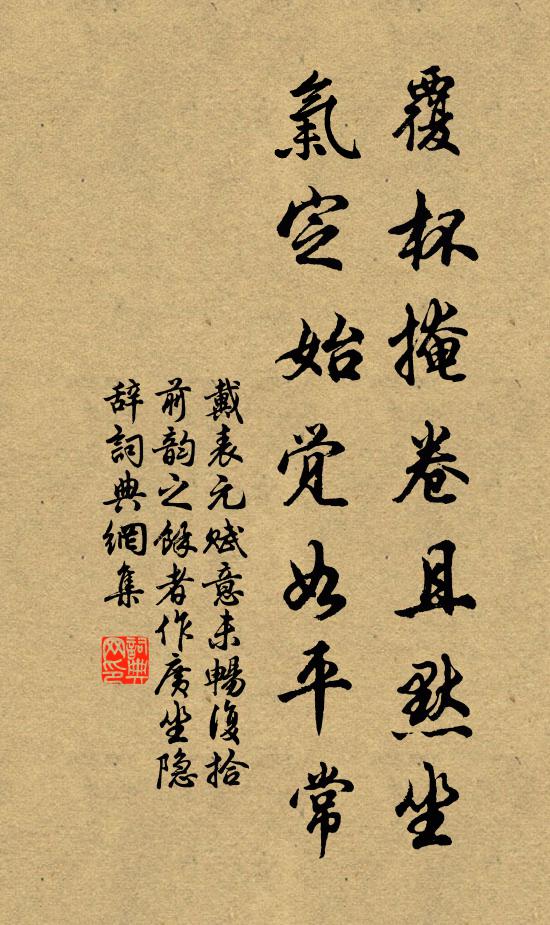 覆杯掩卷且默坐
氣定始觉如平常
戴表元赋意未暢復拾
前韵之餘者作廣坐隐
辞詞典網集
詞典
网印